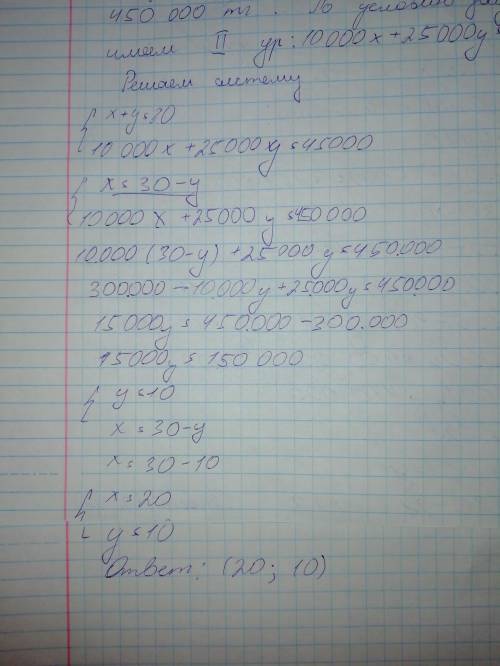 450 000 тг. По условию
имеем II ур: 10 000x + 25000y =
Решаем систему
{ x + y = 30
10 000x + 25000 xy = 45000
{ x = 30 - y
10 000 x + 25000 y = 450 000
10.000 (30 - y) + 25 000 y = 450.000
300.000 - 10.000y + 25.000y = 450.000
15 000y = 450.000 - 300.000
15000y = 150 000
{ y = 10
x = 30 - y
x = 30 - 10
{ x = 20
y = 10
Ответ: (20; 10)